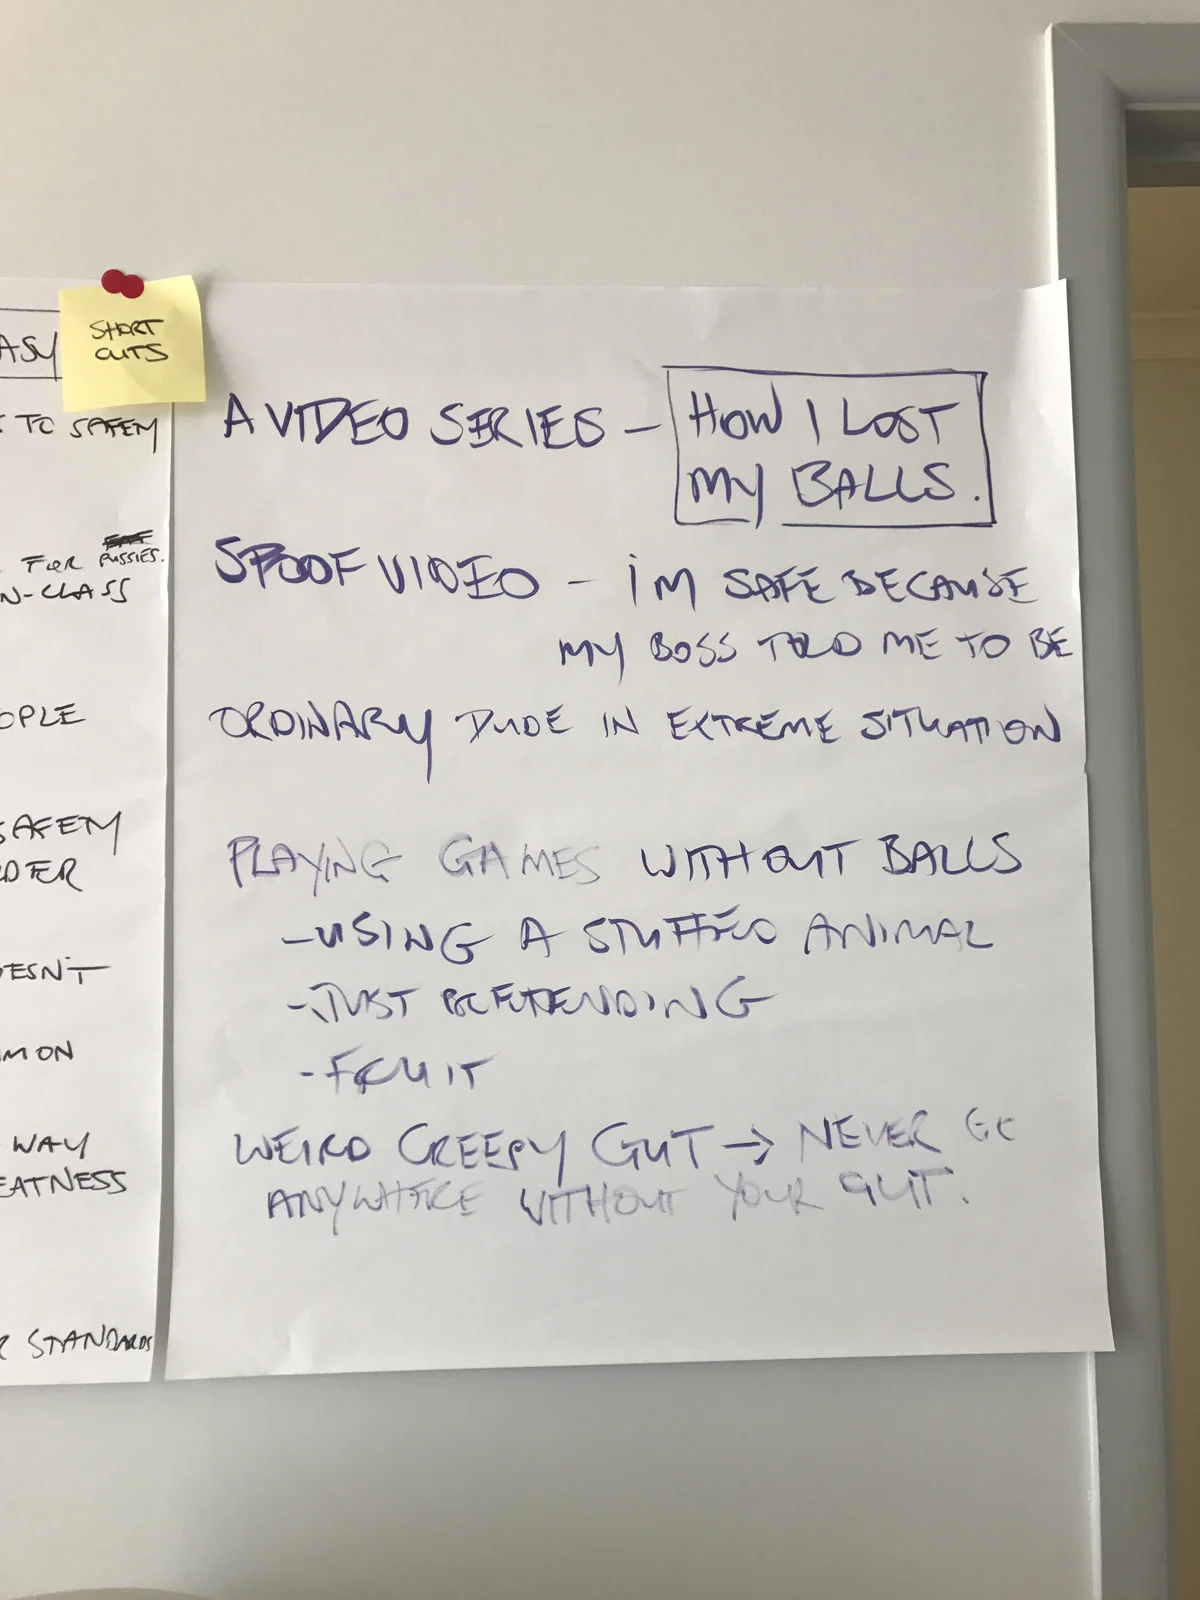 ASY
S TO SAFETY
FOR PUSSIES.
N-CLASS
OPLE
SAFETY
DER
ESN'T
MON
WAY
EATNESS
R STANDARDS
SHORT
CUTS
A VIDEO SERIES – HOW I LOST
MY BALLS.
SPOOF VIDEO – I'M SAFE BECAUSE
MY BOSS TOLD ME TO BE
ORDINARY DUDE IN EXTREME SITUATION
PLAYING GAMES WITHOUT BALLS
- USING A STUFFED ANIMAL
- JUST PRETENDING
- FRUIT
WEIRD CREEPY GUT → NEVER GO
ANYWHERE WITHOUT YOUR GUT.